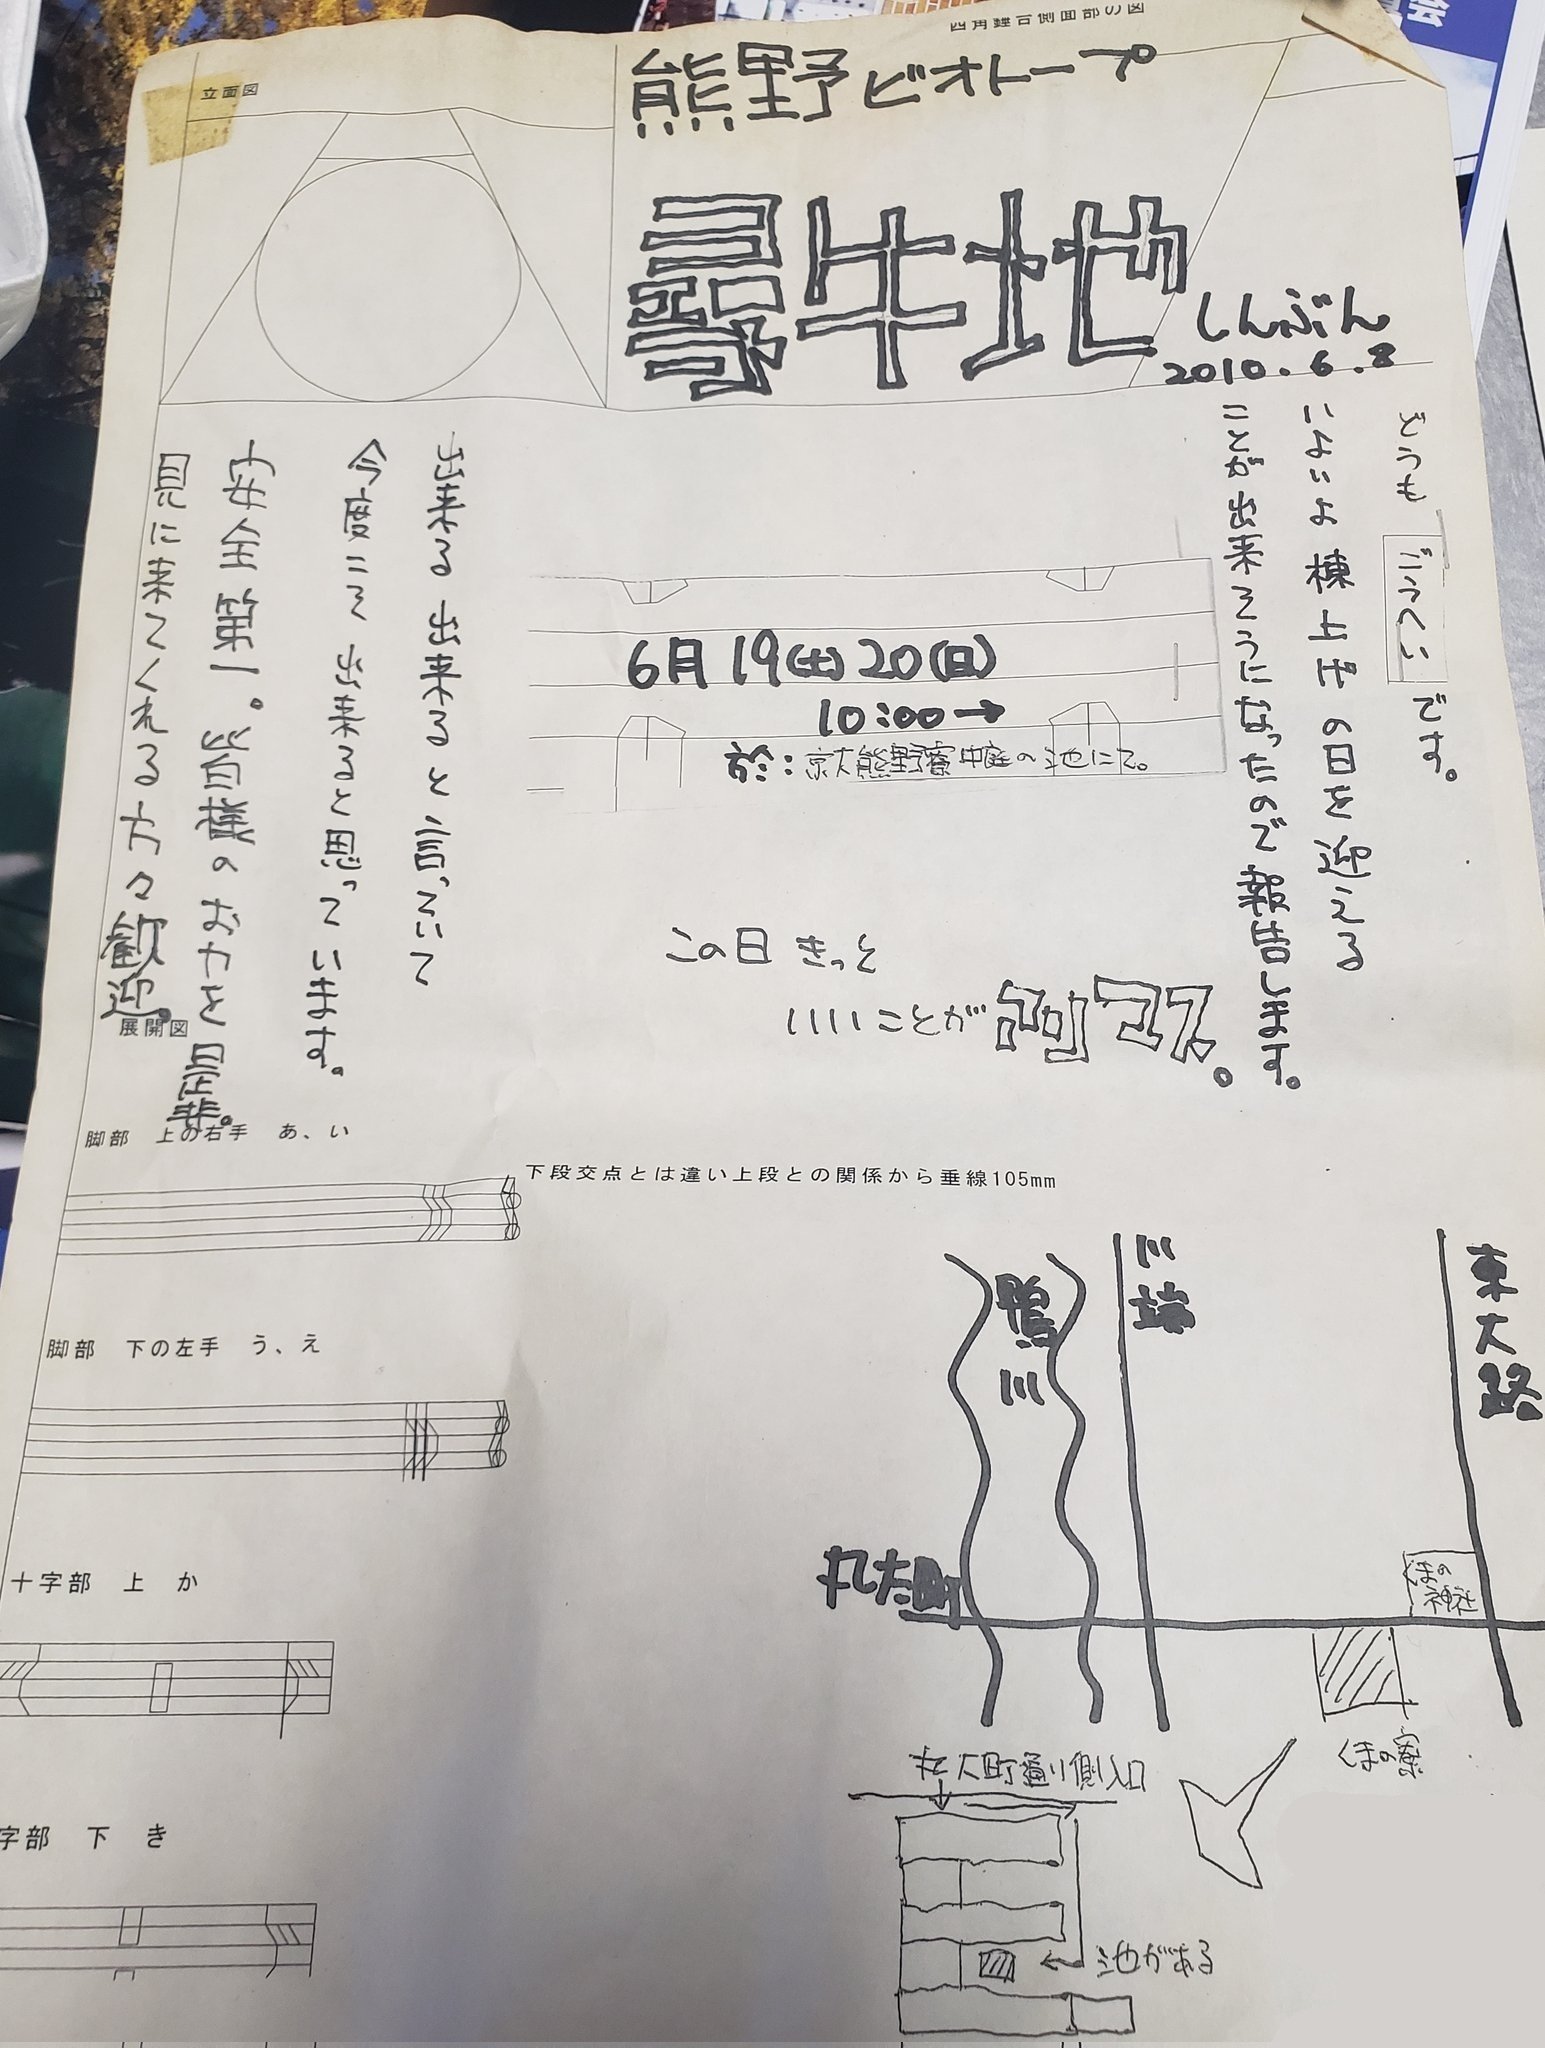 立面図
四角錐台側面部の図
熊野ビオトープ
しんぶん
2010.6.8
どうも ごうへい です。
いよいよ棟上げの日を迎える
ことが出来そうになったので報告します。
6月19(土)20(日)
10:00→
於：京大熊野寮中庭の池にて。
この日 きっと
いいことが
出来る出来ると言っていて
今度こそ出来ると思っています。
安全第一。皆様のお力を是非。
見に来てくれる方々歓迎。
展開図
脚部 上の右手 あ、い
下段交点とは違い上段との関係から垂線105mm
脚部 下の左手 う、え
十字部 上 か
字部 下 き
鴨川
川端
東大路
丸太町
くまの
神社
くまの寮
丸太町通り側入口
池がある